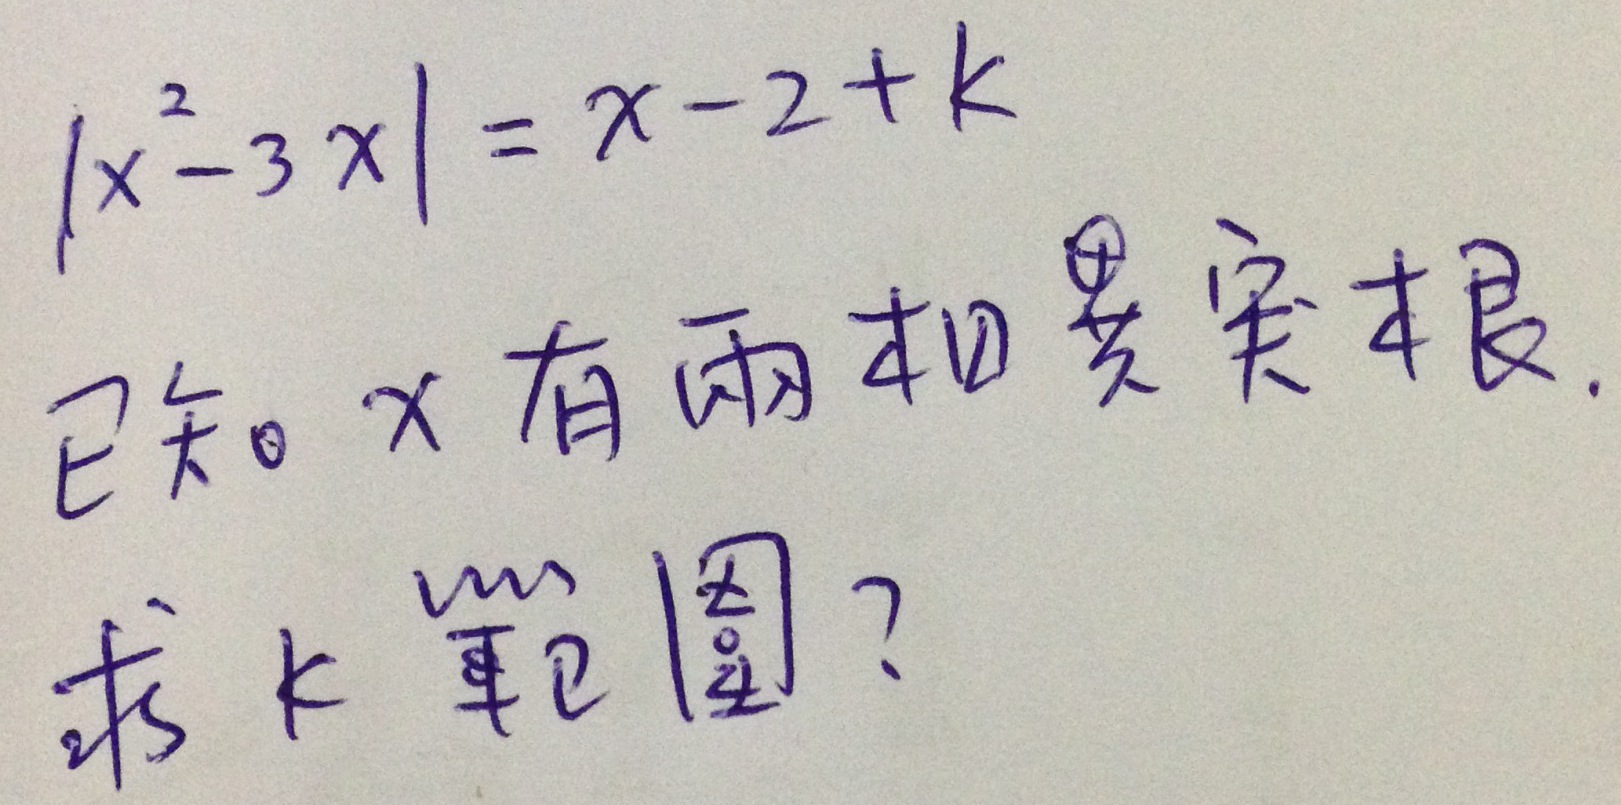 |x²-3x| = x-2+k
已知 x 有兩相異实根.
求 k 範圍?